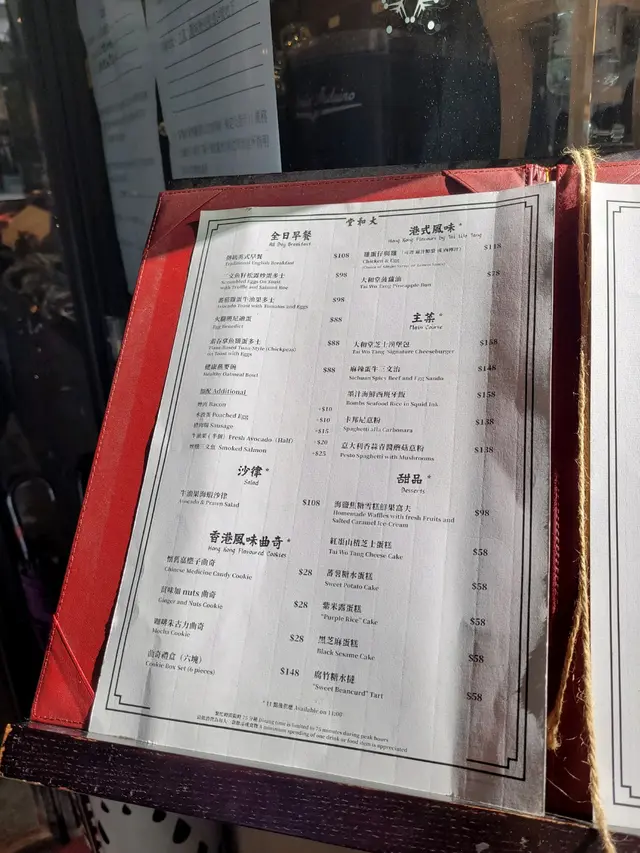 大和堂
全日早餐
All Day Breakfast
傳統英式早餐 $108
Traditional English Breakfast
$98
Scrambled Eggs on Toast
with Truffle and Salmon Roe
$98
Avocado Toast with Tomato and Eggs
$88
Egg Benedict
$88
Plant-Based Tuna Style (Chickpea)
on Toast with Eggs
健康燕麥碗 $88
Healthy Oatmeal Bowl
額配 Additional
Bacon +$10
水煮蛋 Poached Egg +$10
Sausage +$15
牛油果(半個) Fresh Avocado (Half) +$20
Smoked Salmon +$25
沙律*
Salad
牛油果海蝦沙律 $108
Avocado & Prawn Salad
香港風味曲奇*
Hong Kong Flavoured Cookies
懷舊嘉應子曲奇 $28
Chinese Medicine Candy Cookie
nuts 曲奇 $28
Ginger and Nuts Cookie
咖啡朱古力曲奇 $28
Mocha Cookie
曲奇禮盒(六塊) $148
Cookie Box Set (6 pieces)
港式風味*
Hong Kong Flavours by Tai Wo Tang
雞蛋仔與雞 $118
Chicken & Egg
大和堂菠蘿油 $78
Tai Wo Tang Pineapple Bun
主菜*
Main Course
大和堂芝士漢堡包
Tai Wo Tang Signature Cheeseburger
麻辣蛋牛三文治 $148
Sichuan Spicy Beef and Egg Sando
墨汁海鮮西班牙飯 $158
Bomba Seafood Rice in Squid Ink
卡邦尼意粉 $138
Spaghetti alla Carbonara
意大利香蒜青醬蘑菇意粉 $138
Pesto Spaghetti with Mushrooms
甜品*
Desserts
海鹽焦糖雪糕鮮果窩夫 $98
Homemade Waffles with fresh Fruits and
Salted Caramel Ice Cream
紅棗山楂芝士蛋糕 $58
Tai Wo Tang Cheese Cake
蕃薯糖水蛋糕 $58
Sweet Potato Cake
紫米露蛋糕 $58
"Purple Rice" Cake
黑芝麻蛋糕 $58
Black Sesame Cake
腐竹糖水撻 $58
"Sweet Beancurd" Tart
Available on 11:00
Dining time is limited to 75 minutes during peak hours
A maximum spending of one drink or food item is appreciated